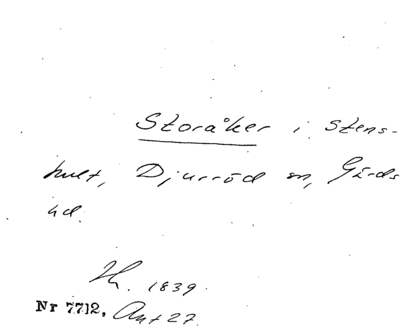 Storåker i Stens-
hult, Djurröd sn, Gärds
hd.
Th. 1839.
Nr 7712, Ant 27.